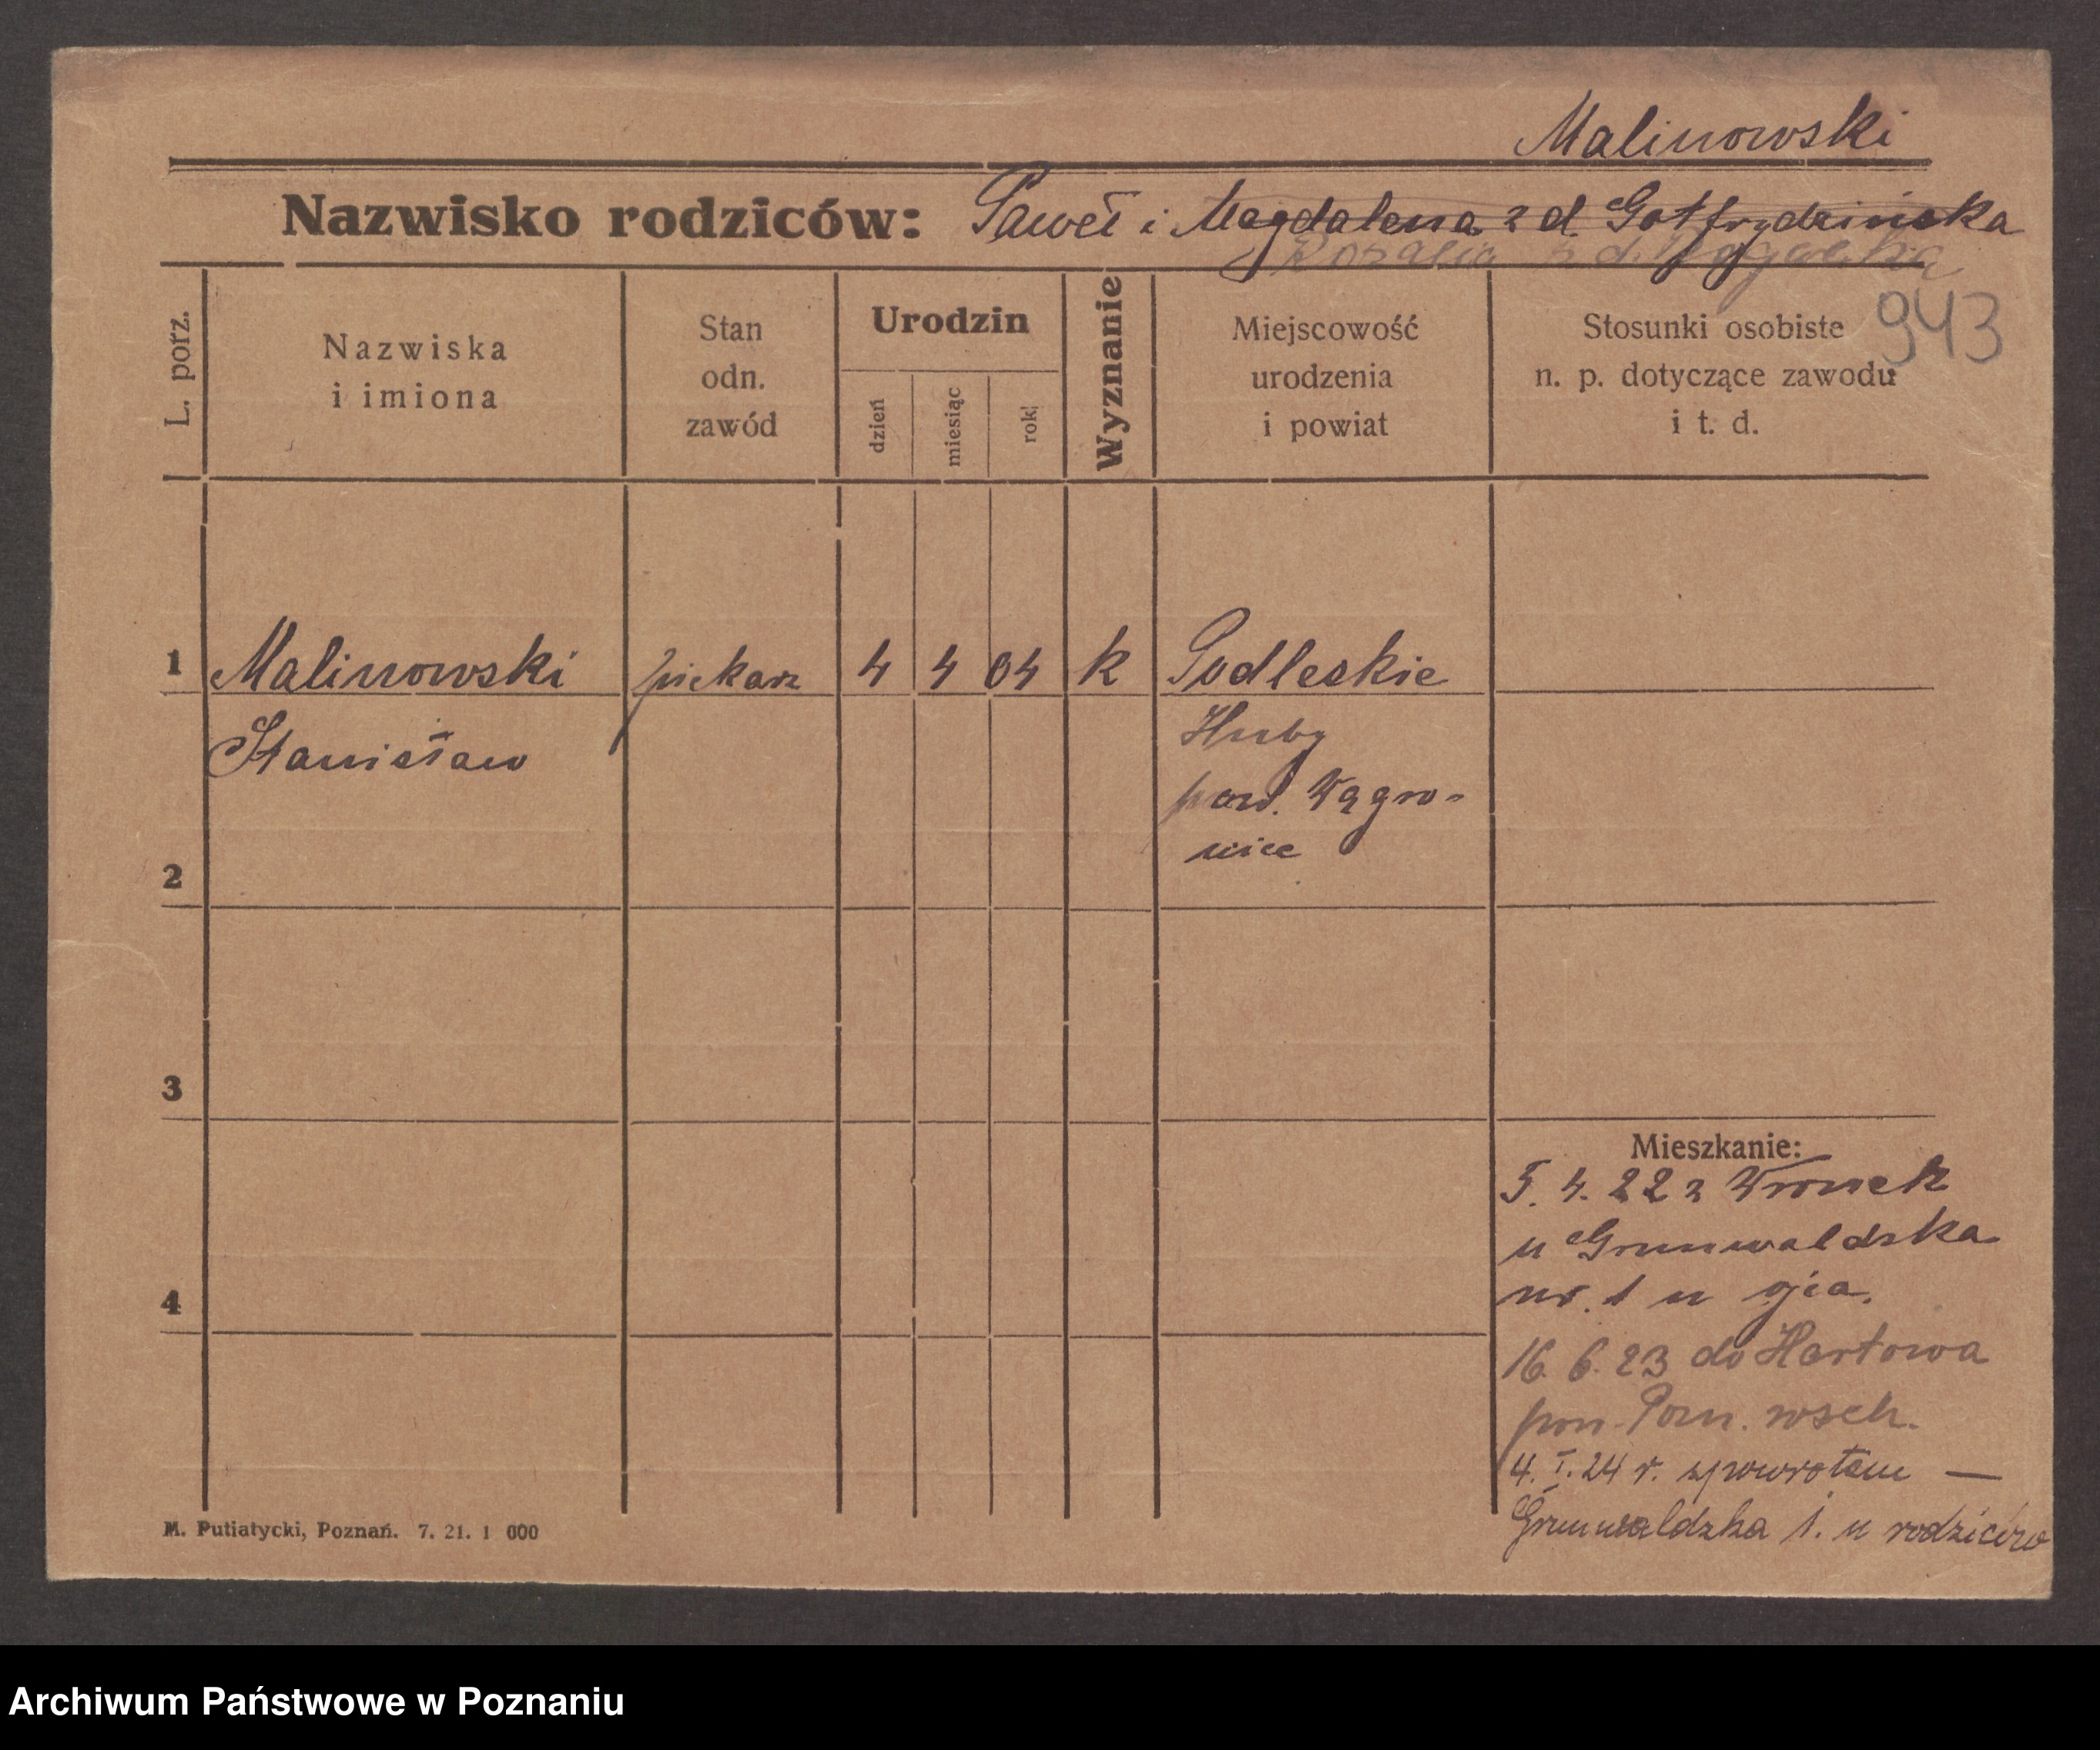 Malinowski
Nazwisko rodziców: Paweł i Magdalena z d Gotfrydzińska
Rozalia z d.
943
L. porz.
Nazwiska
i imiona
Stan
odn.
zawód
Urodzin
dzień
miesiąc
rok
Wyznanie
Miejscowość
urodzenia
i powiat
Stosunki osobiste
n. p. dotyczące zawodu
i t. d.
1 Malinowski piekarz 4 4 04 k Podleskie
Stanisław Huby
pow. Wągro-
wice
2
3
4
Mieszkanie:
5. 4. 22 z Wronek
u Grunwaldska
nr. 1 u ojca.
16. 6. 23 do Hartowa
pow. Pozn. wsch.
4. I. 24 r. zpowrotem —
Grunwaldzka 1. u rodziców
M. Putiatycki, Poznań. 7. 21. 1 000
Archiwum Państwowe w Poznaniu